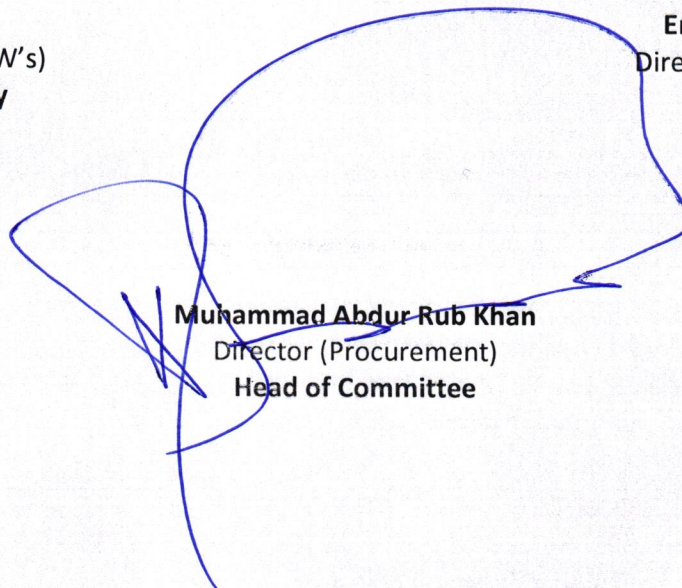 W's)
y
En
Dire
Muhammad Abdur Rub Khan
Director (Procurement)
Head of Committee